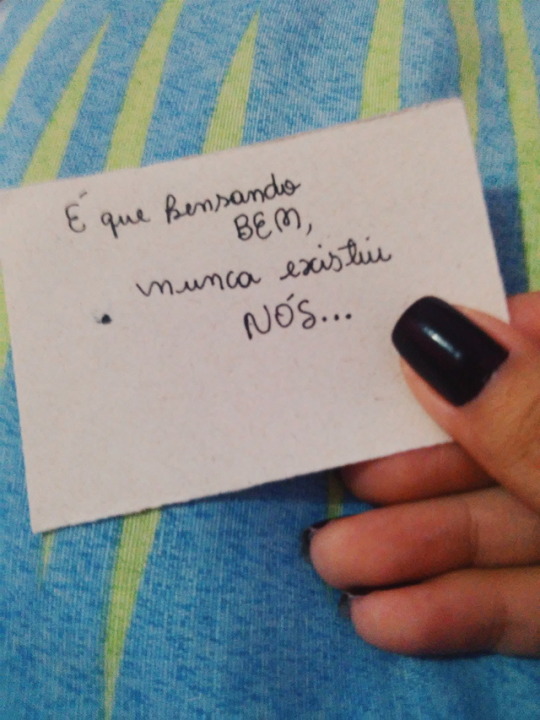 É que pensando
BEM,
nunca existiu
NÓS...